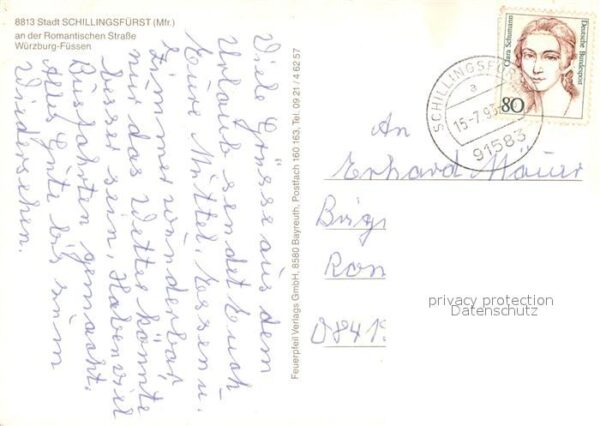 8813 Stadt SCHILLINGSFÜRST (Mfr.)
an der Romantischen Straße
Würzburg-Füssen
Viele Grüsse aus dem
Urlaub sendet Euch
Eure Mutter. Essen u.
Zimmer wunderbar,
nur das Wetter könnte
besser sein, Haben viel
Busfahrten gemacht.
Alles Gute bis zum
Wiedersehen.
Feuerpfeil Verlags GmbH, 8580 Bayreuth, Postfach 160 163, Tel. 09 21 / 4 62 57
Clara Schumann
Deutsche Bundespost
80
SCHILLINGSFÜRST
a
15-7.93
91583
An
Erhard Mäuer
Ron
D841
privacy protection
Datenschutz